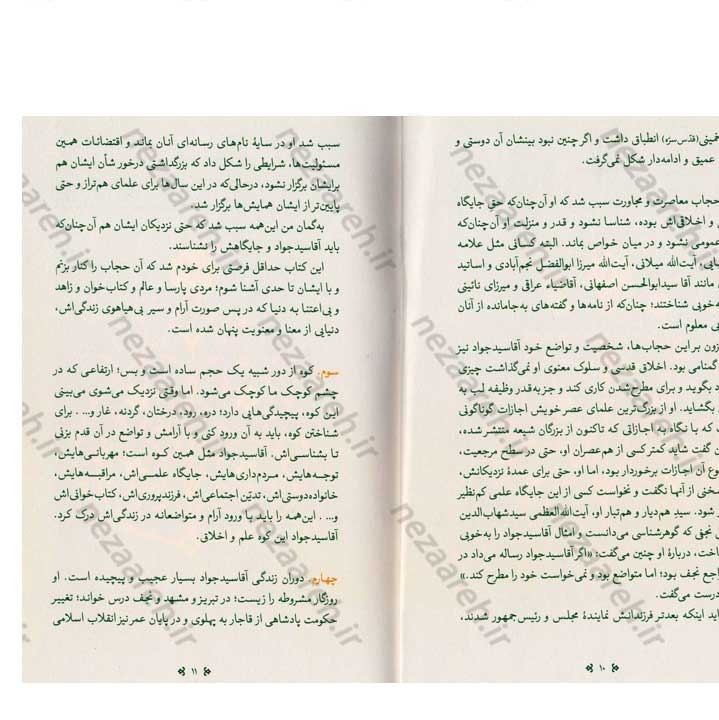 خمینی(قدّس سرّه) انطباق داشت و اگر چنین نبود بینشان آن دوستی و
عمیق و ادامه‌دار شکل نمی‌گرفت.
حجاب معاصرت و مجاورت سبب شد که او آن‌چنان‌که حق جایگاه
و اخلاقی‌اش بوده، شناسا نشود و قدر و منزلت او آن‌چنان‌که
عمومی نشود و در میان خواص بماند. البته کسانی مثل علامه
آیت‌الله میلانی، آیت‌الله میرزا ابوالفضل نجم‌آبادی و اساتید
مانند آقا سیدابوالحسن اصفهانی، آقاضیاء عراقی و میرزای نائینی
به‌خوبی شناختند؛ چنان‌که از نامه‌ها و گفته‌های به‌جامانده از آنان
معلوم است.
بر این حجاب‌ها، شخصیت و تواضع خود آقاسیدجواد نیز
گمنامی بود. اخلاق قدسی و سلوک معنوی او نمی‌گذاشت چیزی
بگوید و برای مطرح‌شدن کاری کند و جز به‌قدر وظیفه لب به
بگشاید. او از بزرگ‌ترین علمای عصر خویش اجازات گوناگونی
که با نگاه به اجازاتی که تاکنون از بزرگان شیعه منتشر شده،
گفت شاید کمتر کسی از هم‌عصران او، حتی در سطح مرجعیت،
آن اجازات برخوردار بود، اما او، حتی برای عمدهٔ نزدیکانش،
از آنها نگفت و نخواست کسی از این جایگاه علمی کم‌نظیر
شود. سید هم‌دیار و هم‌تبار او، آیت‌الله‌العظمی سیدشهاب‌الدین
نجفی که گوهرشناسی می‌دانست و امثال آقاسیدجواد را به‌خوبی
دربارهٔ او چنین می‌گفت: «اگر آقاسیدجواد رساله می‌داد در
نجف بود؛ اما متواضع بود و نمی‌خواست خود را مطرح کند.»
درست می‌گفت.
اینکه بعدتر فرزندانش نمایندهٔ مجلس و رئیس‌جمهور شدند،
۱۰
سبب شد او در سایهٔ نام‌های رسانه‌ای آنان بماند و اقتضائات همین
مسئولیت‌ها، شرایطی را شکل داد که بزرگداشتی درخور شأن ایشان هم
برایشان برگزار نشود، درحالی‌که در این سال‌ها برای علمای هم‌تراز و حتی
پایین‌تر از ایشان همایش‌ها برگزار شد.
به‌گمان من این‌همه سبب شد که حتی نزدیکان ایشان هم آن‌چنان‌که
باید آقاسیدجواد و جایگاهش را نشناسند.
این کتاب حداقل فرصتی برای خودم شد که آن حجاب را کنار بزنم
و با ایشان تا حدی آشنا شوم؛ مردی پارسا و عالم و کتاب‌خوان و زاهد
و بی‌اعتنا به دنیا که در پس صورت آرام و سیر بی‌هیاهوی زندگی‌اش،
دنیایی از معنا و معنویت پنهان شده است.
سوم. کوه از دور شبیه یک حجم ساده است و بس؛ ارتفاعی که در
چشم کوچک ما کوچک می‌شود. اما وقتی نزدیک می‌شوی می‌بینی
این کوه، پیچیدگی‌هایی دارد؛ دره، رود، درختان، گردنه، غار و... . برای
شناختن کوه، باید به آن ورود کنی و با آرامش و تواضع در آن قدم بزنی
تا بشناسی‌اش. آقاسیدجواد مثل همین کوه است؛ مهربانی‌هایش،
توجه‌هایش، مردم‌داری‌هایش، جایگاه علمی‌اش، مراقبه‌هایش،
خانواده‌دوستی‌اش، تدیّن اجتماعی‌اش، فرزندپروری‌اش، کتاب‌خوانی‌اش
و... . این‌همه را باید با ورود آرام و متواضعانه در زندگی‌اش درک کرد.
آقاسیدجواد این کوه علم و اخلاق.
چهارم. دوران زندگی آقاسیدجواد بسیار عجیب و پیچیده است. او
روزگار مشروطه را زیست؛ در تبریز و مشهد و نجف درس خواند؛ تغییر
حکومت پادشاهی از قاجار به پهلوی و در پایان عمر نیز انقلاب اسلامی
۱۱
nezaareh.ir